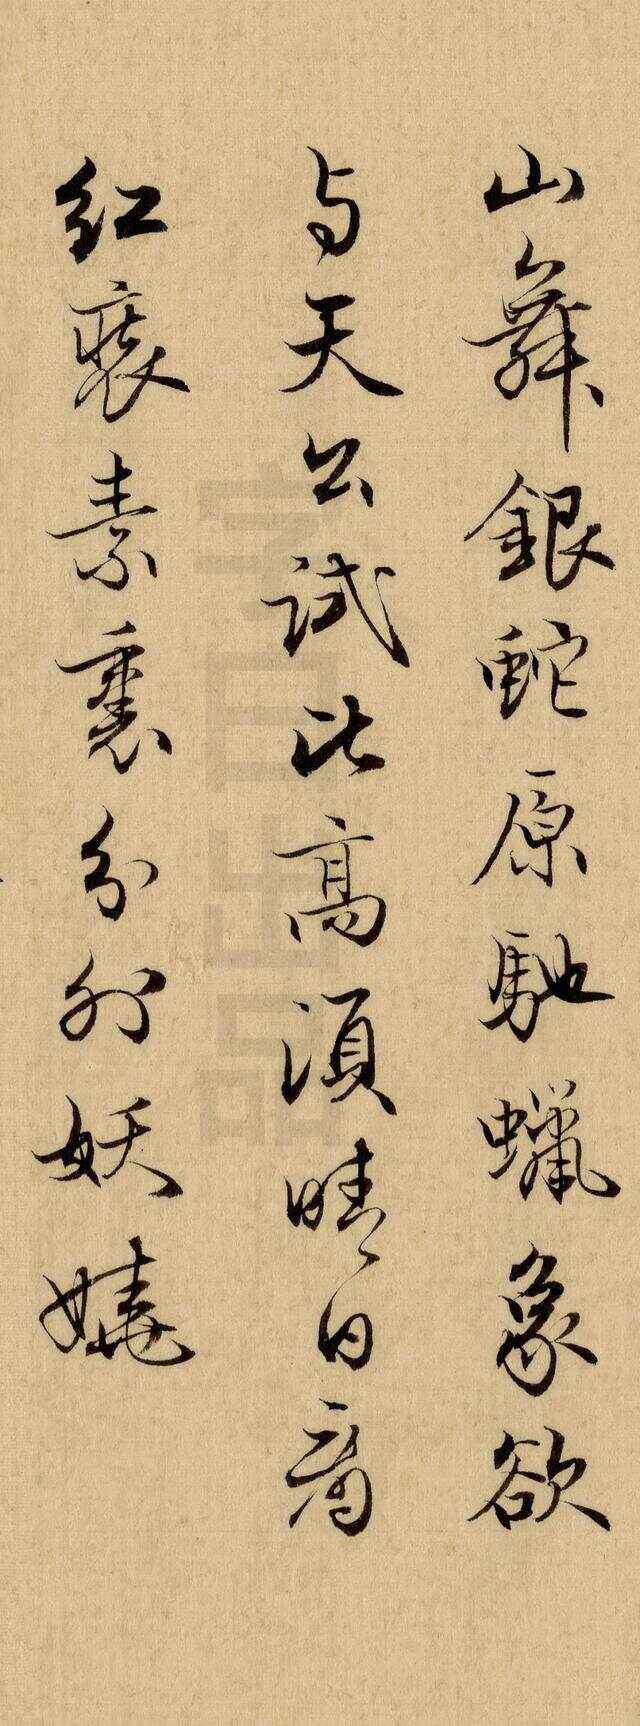 山舞銀蛇原馳蠟象欲
与天公試比高須晴日看
紅裝素裹分外妖嬈